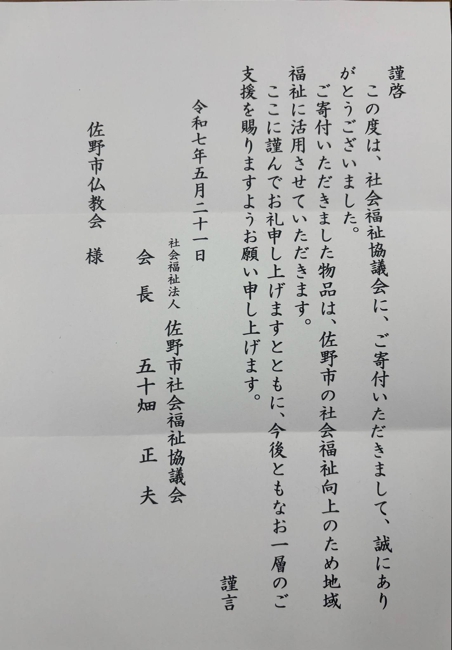 謹啓
この度は、社会福祉協議会に、ご寄付いただきまして、誠にあり
がとうございました。
ご寄付いただきました物品は、佐野市の社会福祉向上のため地域
福祉に活用させていただきます。
ここに謹んでお礼申し上げますとともに、今後ともなお一層のご
支援を賜りますようお願い申し上げます。
謹言
令和七年五月二十一日
社会福祉法人 佐野市社会福祉協議会
会長 五十畑 正夫
佐野市仏教会 様